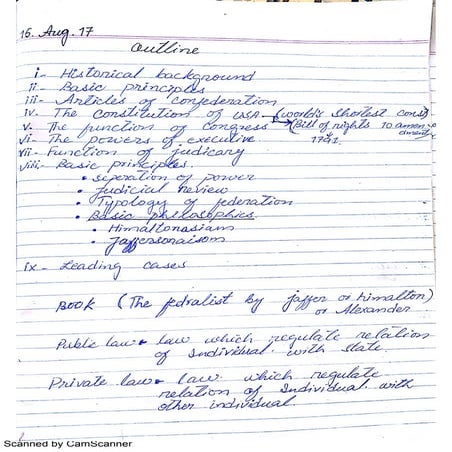 15. Aug. 17
outline
i- Historical background
ii- Basic principles
iii- Articles of confederation
iv. The constitution of USA → (world's shortest const)
v. The function of Congress → (Bill of rights 10 amen
vi- The powers of executive 1791.
vii- Function of judicary
viii- Basic principles.
• seperation of power
• judicial review
• Typology of federation
• Basic philosophies
• Himaltonasians
• Jaffersonaisom
ix - Leading cases
BOOK (The fedralist by jaffer or himalton)
or Alexander
Public law - law which regulate relation
of Individual with state.
Private law - law which regulate
relation of Individual with
other individual
Scanned by CamScanner